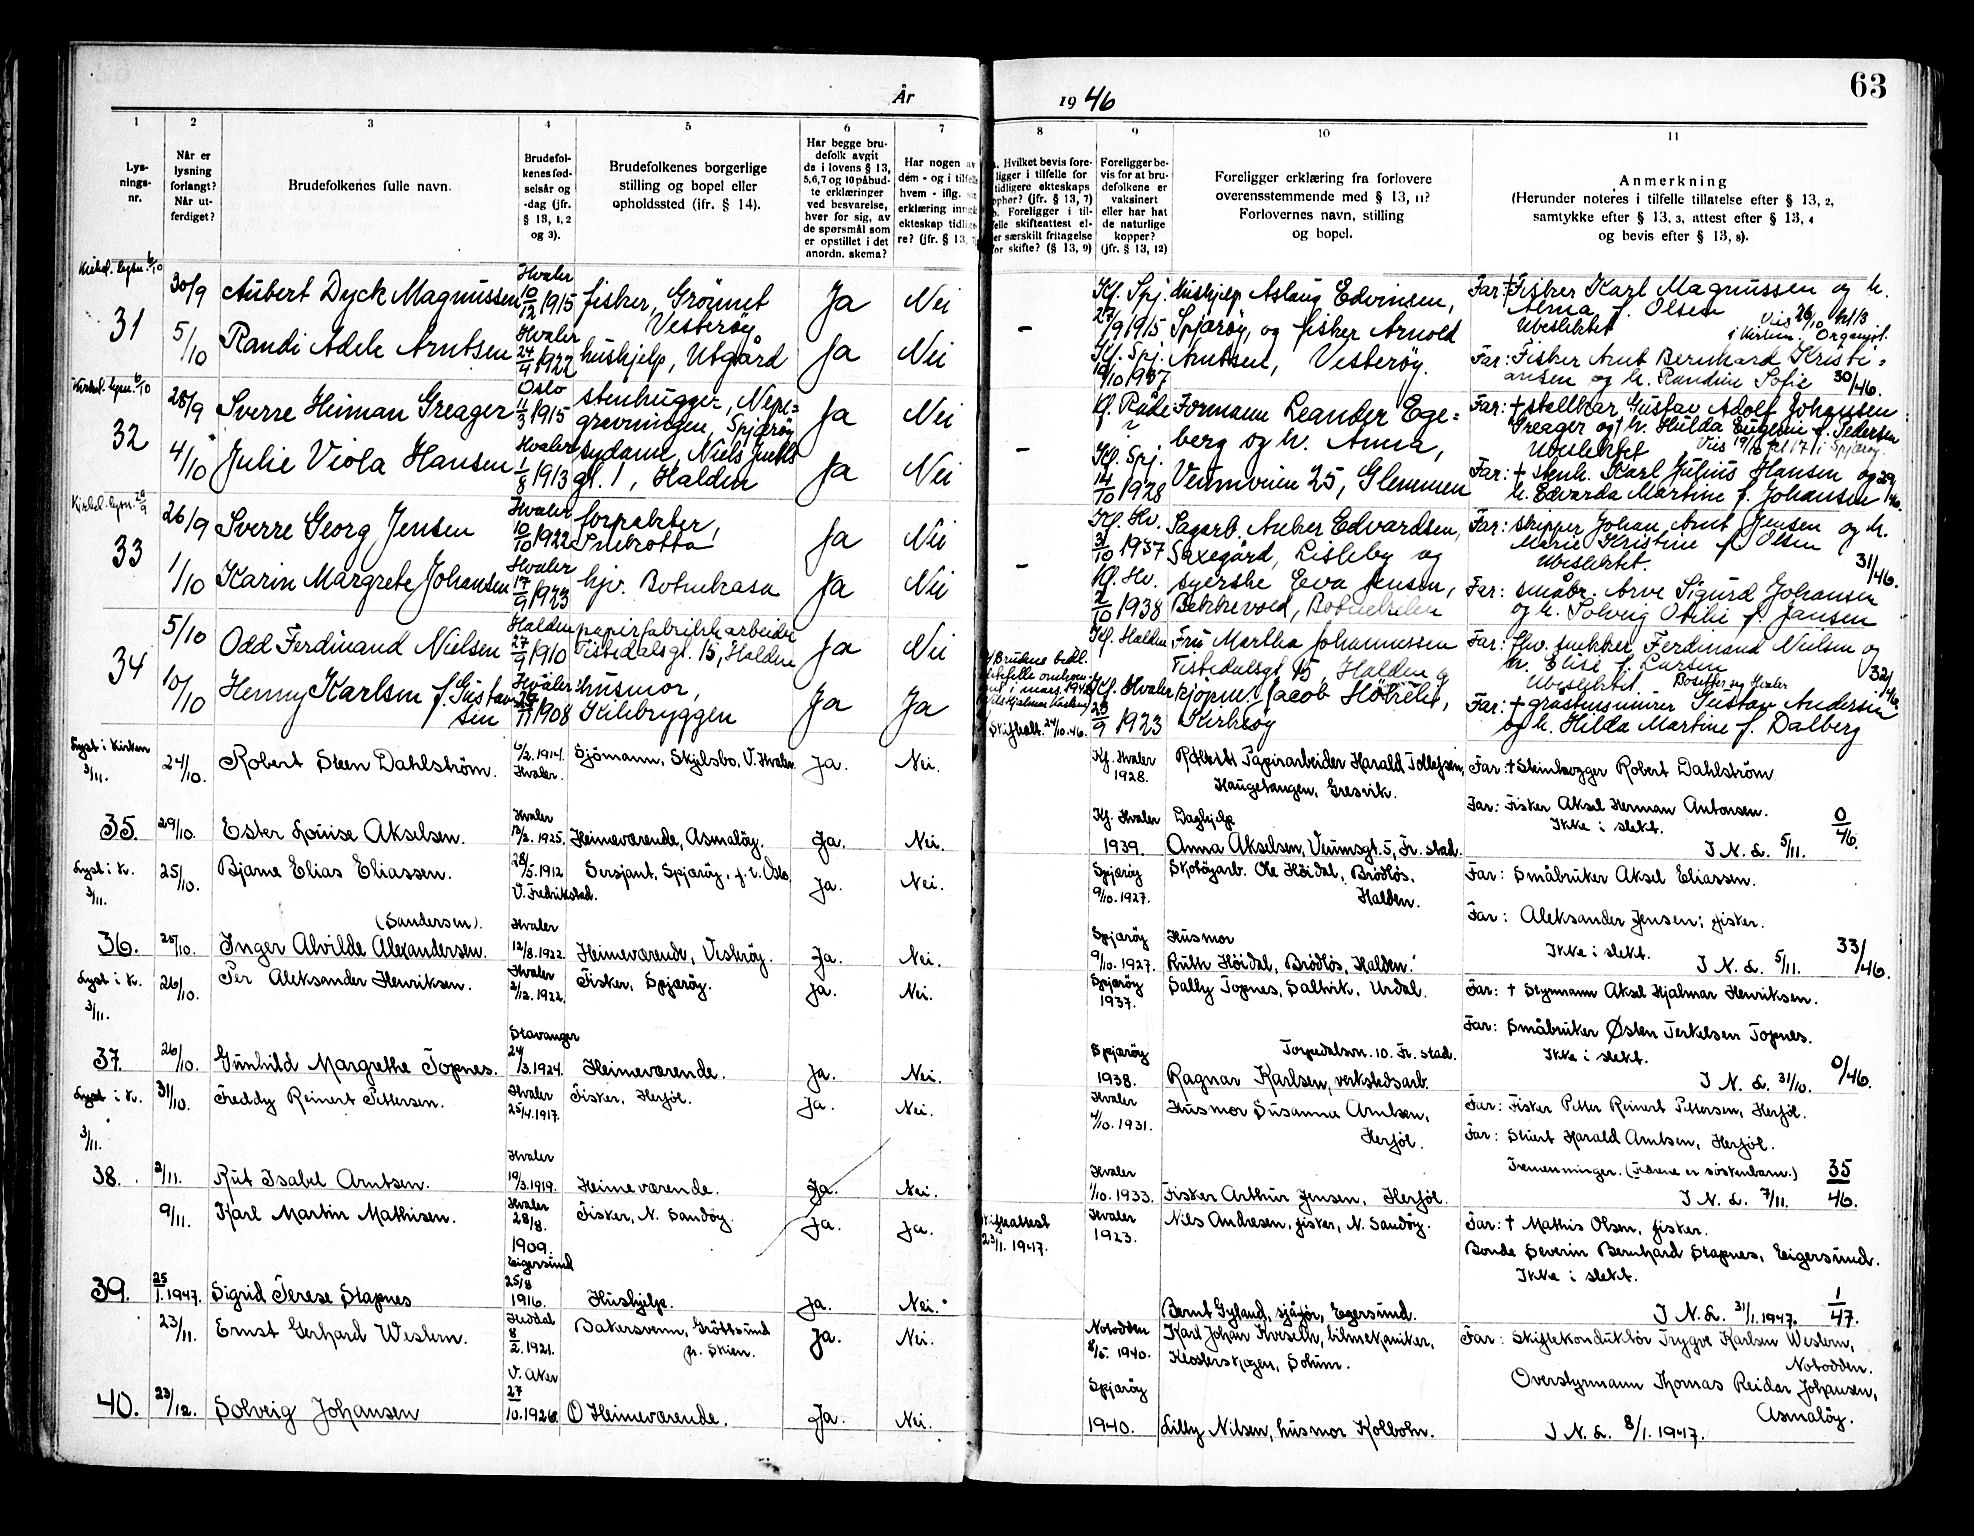 63
År
19 46
1
2
3
4
5
6
7
8
9
10
11
Lys-
nings-
nr.
Når er
lysning
forlangt?
Når ut-
ferdiget?
Brudefolkenes fulle navn.
Brudefol-
kenes fød-
selsår og
-dag (jfr.
§ 13, 1, 2
og 3).
Brudefolkenes borgerlige
stilling og bopel eller
opholdssted (ifr. § 14).
Har begge bru-
defolk avgit
de i lovens § 13,
5, 6, 7 og 10 påbud-
te erklæringer
ved besvarelse,
hver for sig, av
de spørsmål som
er opstillet i det
anordn. skema?
Har nogen av
dem - og i tilfelle
hvem - iflg.
erklæring inngått
ekteskap tidlige-
re? (jfr. § 13, 7)
Hvilket bevis fore-
ligger i tilfelle for
tidligere ekteskaps
ophør? (jfr. § 13, 7)
b. Foreligger i til-
felle skifteattest el-
ler særskilt fritagelse
for skifte? (§ 13, 9)
Foreligger be-
vis for at bru-
defolkene er
vaksinert
eller har hat
de naturlige
kopper?
(jfr. § 13, 12)
Foreligger erklæring fra forlovere
overensstemmende med § 13, 11?
Forlovernes navn, stilling
og bopel.
Anmerkning
(Herunder noteres i tilfelle tillatelse efter § 13, 2,
samtykke efter § 13, 3, attest efter § 13, 4
og bevis efter § 13, 8).
31
30/9
Aubert Dyck Magnussen
Hvaler
10/12 1915
fisker, Grönnet
Vesteröy
Ja
Nei
Kf. Spj.
27/9 1915
Hushjelp Aslaug Edvinsen,
Spjæröy, og fisker Arnold
Arntsen, Vesteröy.
Far: † Fisker Karl Magnussen og h.
Alma f. Olsen
Ubeslektet
5/10
Randi Adele Arntsen
Hvaler
24/4 1922
hushjelp, Utgård
Ja
Nei
–
Kf. Spj.
10/10 1937
Far: Fisker Arnt Bernhard Kristi-
ansen og h. Randine Sofie
30/46.
32
28/9
Sverre Heiman Greager
Oslo
11/3 1915
stenhugger, Nepe-
grevningen, Spjæröy
Ja
Nei
Kf. Råde
Formann Leander Ege-
berg og h. Anna,
Veumveien 25, Glemmen
Far: † stallkar Gustav Adolf Johansen
Greager og h. Hilda Eugenie f. Pedersen
Ubeslektet
4/10
Julie Viola Hansen
Hvaler
1/8 1913
sydame, Niels Juels
gt. 1, Halden
Ja
Nei
–
Kf. Spj.
14/10 1928
Far: † stenh. Karl Julius Hansen og
h. Edvarda Martine f. Johansen
29/46
33
26/9
Sverre Georg Jensen
Hvaler
10/10 1922
forpakter,
Ja
Nei
Kf. Hv.
31/10 1937
Sagarb. Anker Edvardsen,
Saxegård, Lisleby og
syerske Eva Jensen,
Bekkevold, Botnekilen
Far: skipper Johan Arnt Jensen og h.
Marie Kristine f. Olsen
Ubeslektet.
31/46.
1/10
Karin Margrete Johansen
Hvaler
17/9 1923
hjv. Botnekasa
Ja
Nei
–
Kf. Hv.
2/10 1938
Far: småbr. Arve Sigurd Johansen
og h. Solveig Otilie f. Jansen
34
5/10
Odd Ferdinand Nielsen
Halden
27/9 1910
papirfabrikkarbeider
Tistedalsgt. 15, Halden
Ja
Nei
Kf. Halden
Fru Martha Johannessen
Tistedalsgt 15, Halden og
kjöpm. Jacob Hökeli,
Kirköy
Far: fhv. snekker Ferdinand Nielsen og
h. Elise f. Larsen
Ubeslektet.
32/46
10/10
Henny Karlsen f. Gustav-
sen
Hvaler
1908
husmor,
Kilebryggen
Ja
Ja
Skifteatt. 24/10.46.
Kf. Hvaler
23/9 1923
Far: † grosteinsminer Gustav Andersen
og h. Hilda Martine f. Dalberg
Lyst i Kirken
3/11.
24/10.
Robert Steen Dahlström.
6/2. 1914.
Hvaler.
Sjömann, Skjelsbo, V. Hvaler
Ja.
Nei.
Kf. Hvaler
1928.
Papirarbeider Harald Tollefsen,
Haugetangen, Gresvik.
Far: † Steinhogger Robert Dahlström
35.
29/10.
Ester Louise Akselsen.
Hvaler
12/2. 1925.
Heimeværende, Asmalöy.
Ja.
Nei.
Kf. Hvaler
1939.
Daghjelp
Anna Akselsen, Veumsgt. 5, Fr. stad.
Far: Fisker Aksel Herman Antonsen.
Ikke i slekt.
I N. L. 5/11.
0/46.
Lyst i K.
3/11.
25/10.
Bjarne Elias Eliassen.
28/5. 1912
V. Fredrikstad.
Sersjant, Spjæröy, f. t. Oslo.
Ja.
Nei.
Spjæröy
9/10. 1927.
Skotöyarb. Ole Höidal, Brödlös,
Halden.
Far: Småbruker Aksel Eliassen.
36.
25/10.
(Sandersen).
Inger Alvilde Alexandersen.
Hvaler
12/8. 1922.
Heimeværende, Vesteröy.
Ja.
Nei.
Spjæröy
9/10. 1927.
Husmor
Ruth Höidal, Brödlös, Halden.
Far: Aleksander Jensen; fisker.
Ikke i slekt.
I N. L. 5/11.
33/46.
Lyst i K.
3/11.
26/10.
Per Aleksander Henriksen.
Hvaler
2/12. 1922.
Fisker, Spjæröy.
Ja.
Nei.
Spjæröy
1937.
Sally Topnes, Saltvik, Urdal.
Far: † Styrmann Aksel Hjalmar Henriksen.
37.
26/10.
Gunhild Margrethe Topnes.
Stavanger
24/3. 1924.
Heimeværende.
Ja.
Nei.
Spjæröy
1938.
Torpedalsvn. 10. Fr. stad.
Ragnar Karlsen, verkstedsarb.
Far: Småbruker Østen Terkelsen Topnes.
Ikke i slekt.
I N. L. 31/10.
0/46.
Lyst i K.
3/11.
31/10.
Freddy Reinert Pettersen.
Hvaler
25/4. 1917.
Fisker, Herföl.
Ja.
Nei.
Hvaler
4/10. 1931.
Husmor Susanna Arntsen,
Herföl.
Far: Fisker Petter Reinert Pettersen, Herföl.
38.
2/11.
Rut Isabel Arntsen.
Hvaler
19/3. 1919.
Heimeværende.
Ja.
Nei.
Hvaler
1/10. 1933.
Fisker Arthur Jensen, Herföl.
Far: Stuert Harald Arntsen, Herföl.
Tremenninger. (Fedrene er söskenbarn.)
I N. L. 7/11.
35/46.
9/11.
Karl Martin Mathisen.
Hvaler
28/8.
1909.
Fisker, N. Sandöy.
Ja.
Ja.
Skifteattest
23/1. 1947.
Hvaler
1923.
Nils Andresen, fisker, N. Sandöy.
Far: † Mathis Olsen, fisker.
39.
25/1. 1947.
Sigrid Terese Stapnes
Eigersund
25/8
1916.
Hushjelp.
Ja.
Nei.
Bernt Gyland, sjåfør, Egersund.
Bonde Severin Bernhard Stapnes, Eigersund.
Ikke i slekt.
I N. L. 31/1. 1947.
1/47.
23/11.
Ernst Gerhard Western.
Heddal
8/2. 1921.
Bakersvenn, Gröttsund
pr. Skien.
Ja.
Nei.
Notodden
8/5. 1940.
Karl Johan Kveseth, bilmekaniker,
Klosterskogen, Solum.
Far: Skiftekonduktör Trygve Karlsen Western,
Notodden.
40.
23/12.
Solveig Johansen
V. Aker
27/10. 1926.
Heimeværende.
Ja.
Nei.
Spjæröy
1940.
Lilly Nilsen, husmor Kolbotn.
Overstyrmann Thomas Reidar Johansen,
Asmalöy.
I N. L. 8/1. 1947.